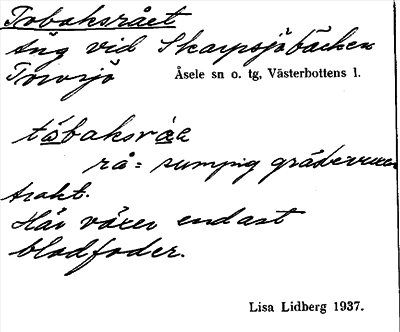 Tobaksrået
Äng vid Skarpsjöbäcken
Torvsjö
Åsele sn o. tg, Västerbottens l.
tóbaksrææ
rå = sumpig gräsbevuxen
trakt.
Här växer endast
blodfoder.
Lisa Lidberg 1937.